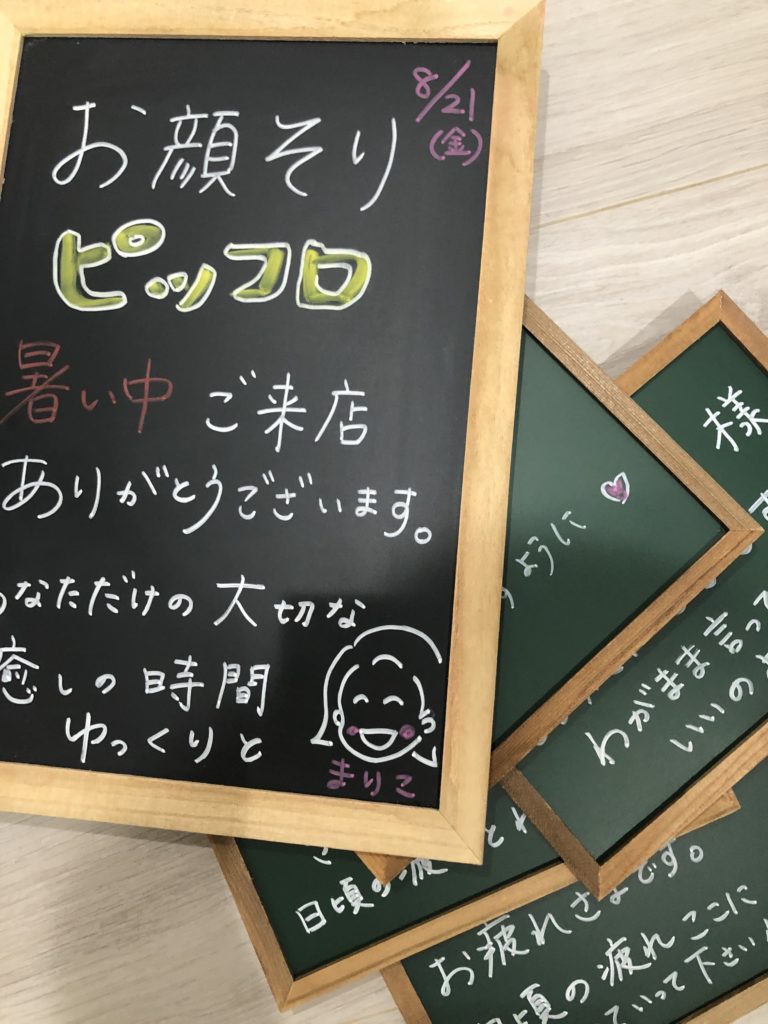 8/21
(金)
お顔そり
ピッコロ
暑い中 ご来店
ありがとうございます。
あなただけの大切な
癒しの時間
ゆっくりと
まりこ
ように
様
わがまま言って
いいの
日頃の疲
お疲れさまです。
日頃の疲れここに
いって下さい